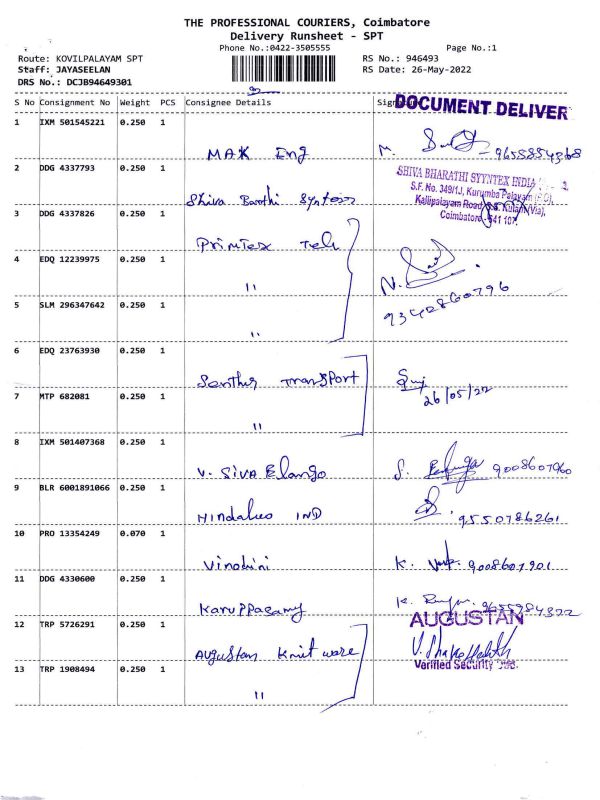 THE PROFESSIONAL COURIERS, Coimbatore
Delivery Runsheet - SPT
Phone No.:0422-3505555 Page No.:1
Route: KOVILPALAYAM SPT RS No.: 946493
Staff: JAYASEELAN RS Date: 26-May-2022
DRS No.: DCJB94649301
S No Consignment No Weight PCS Consignee Details Signature
DOCUMENT DELIVER
1 IXM 501545221 0.250 1
MAK Eng M. 9655854368
2 DDG 4337793 0.250 1
SHIVA BHARATHI SYYNTEX INDIA
S.F. No. 349/1J, Kurumba Palayam (PO),
Shiva Barthi Syntex Kallipalayam Road, S.S. Kulam (Via),
3 DDG 4337826 0.250 1 Coimbatore - 641 107.
Printex Teh
4 EDQ 12239975 0.250 1
" N.
5 SLM 296347642 0.250 1 9342860796
"
6 EDQ 23763930 0.250 1
Senthur Transport
7 MTP 682081 0.250 1 26/05/22
"
8 IXM 501407368 0.250 1
V. SIVA Elango S. 9008607960
9 BLR 6001891066 0.250 1
Hindalco IND 9550786261
10 PRO 13354249 0.070 1
Vinodini K. 9008607901
11 DDG 4330600 0.250 1
Karuppasamy K. 9655984322
12 TRP 5726291 0.250 1 AUGUSTAN
Augustan Knit ware V.
13 TRP 1908494 0.250 1 Verified Security
"